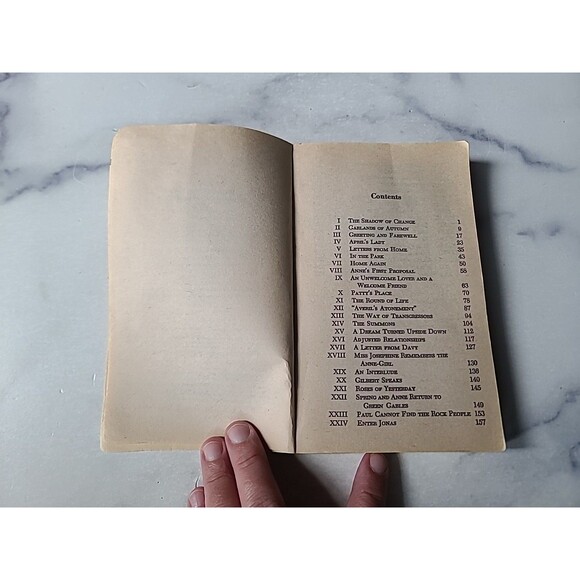 Contents
I The Shadow of Change 1
II Garlands of Autumn 9
III Greeting and Farewell 17
IV April's Lady 23
V Letters from Home 35
VI In the Park 43
VII Home Again 50
VIII Anne's First Proposal 58
IX An Unwelcome Lover and a
Welcome Friend 63
X Patty's Place 70
XI The Round of Life 78
XII "Averil's Atonement" 87
XIII The Way of Transgressors 94
XIV The Summons 104
XV A Dream Turned Upside Down 112
XVI Adjusted Relationships 117
XVII A Letter from Davy 127
XVIII Miss Josephine Remembers the
Anne-Girl 130
XIX An Interlude 138
XX Gilbert Speaks 140
XXI Roses of Yesterday 145
XXII Spring and Anne Return to
Green Gables 149
XXIII Paul Cannot Find the Rock People 153
XXIV Enter Jonas 157